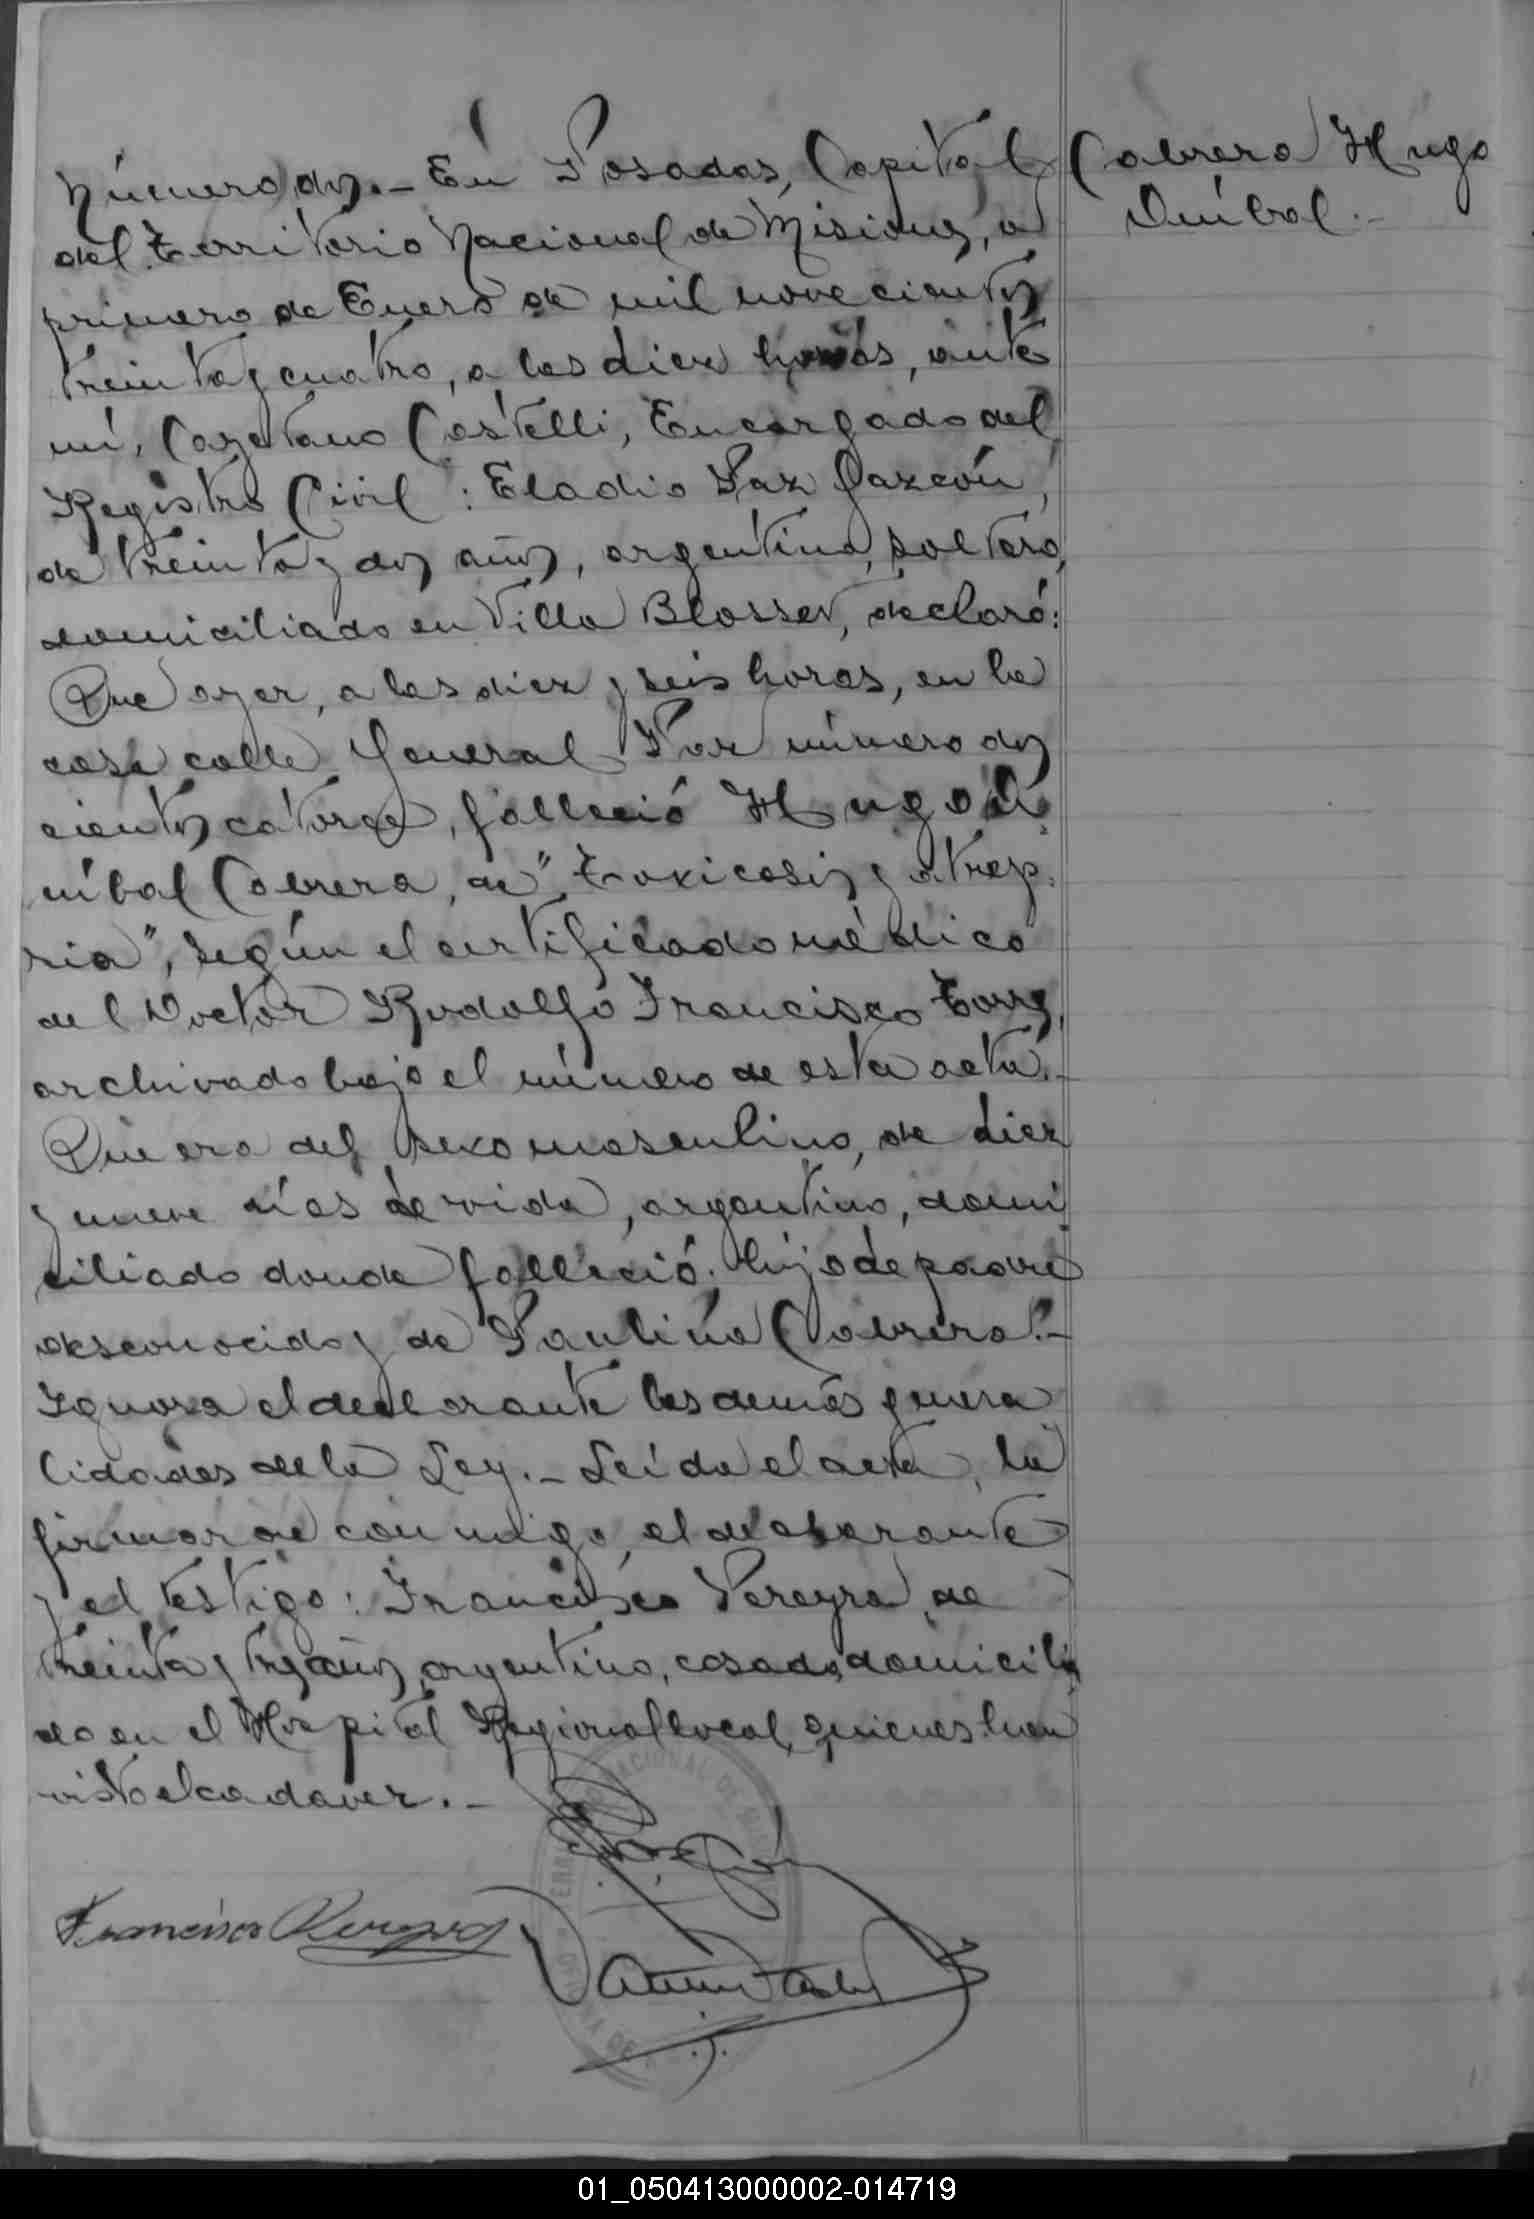 Número dos.– En Posadas, Capital
del Territorio Nacional de Misiones, a
primero de Enero de mil novecientos
treinta y cuatro, a las diez horas, ante
mí, Cayetano Castelli, Encargado del
Registro Civil: Eladio Paz Gazcón,
de treinta y dos años, argentino, soltero,
domiciliado en Villa Blosset, declaró:
Que ayer, a las diez y seis horas, en la
casa calle General Paz número dos
cientos catorce, falleció Hugo A
níbal Cabrera, de "Toxicosis y atrep
sia", según el certificado médico
del Doctor Rodolfo Francisco Torres,
archivado bajo el número de esta acta.–
Que era del sexo masculino, de diez
y nueve días de vida, argentino, domi
ciliado donde falleció; hijo de padre
desconocido y de Paulina Cabrera.–
Ignora el declarante las demás genera
lidades de la Ley.– Leída el acta, la
firmaron conmigo, el declarante
y el testigo: Francisco Pereyra, de
treinta y tres años, argentino, casado, domicilia
do en el Hospital Regional local, quienes han
visto el cadaver.–
Francisco Pereyra
Cabrera Hugo
Aníbal.–
01_050413000002-014719